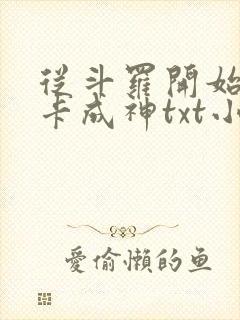 從斗羅開始
卡成神txt小
愛偷懶的鱼